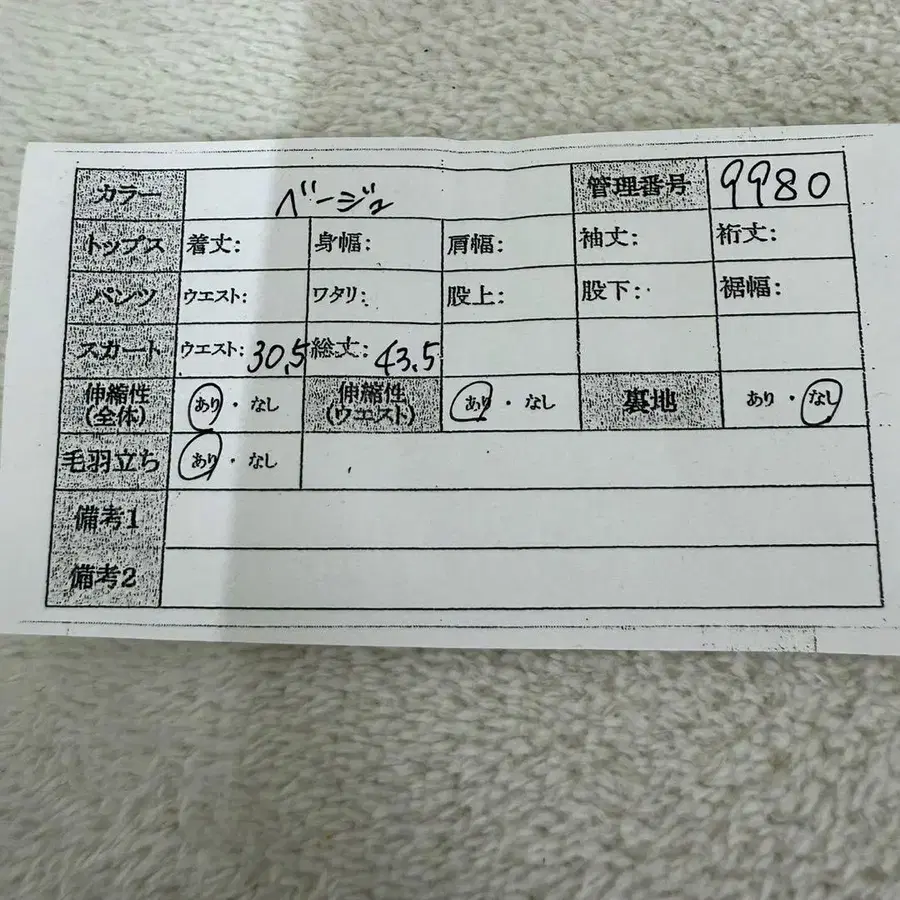 カラー ベージュ 管理番号 9980
トップス 着丈: 身幅: 肩幅: 袖丈: 裄丈:
パンツ ウエスト: ワタリ: 股上: 股下: 裾幅:
スカート ウエスト: 30.5 総丈: 43.5
伸縮性 (全体) あり・なし 伸縮性 (ウエスト) あり・なし 裏地 あり・なし
毛羽立ち あり・なし
備考1
備考2